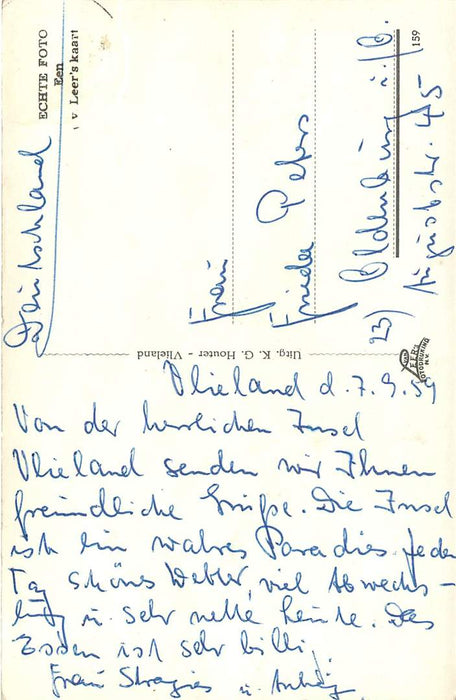 ECHTE FOTO
Een
v Leer's kaart
159
Deutschland
Frau
Frieda Peters
23) Oldenburg i./O.
Auguststr. 45
Uitg. K. G. Houter - Vlieland
VAN LEER'S
FOTODRUKIND
N.V.
Vlieland d. 7.9.59
Von der herrlichen Insel
Vlieland senden wir Ihnen
freundliche Grüße. Die Insel
ist ein wahres Paradies. Jeden
Tag schönes Wetter, viel Abwechs-
lung u. sehr nette Leute. Das
Essen ist sehr billi
Frau u. Anhang